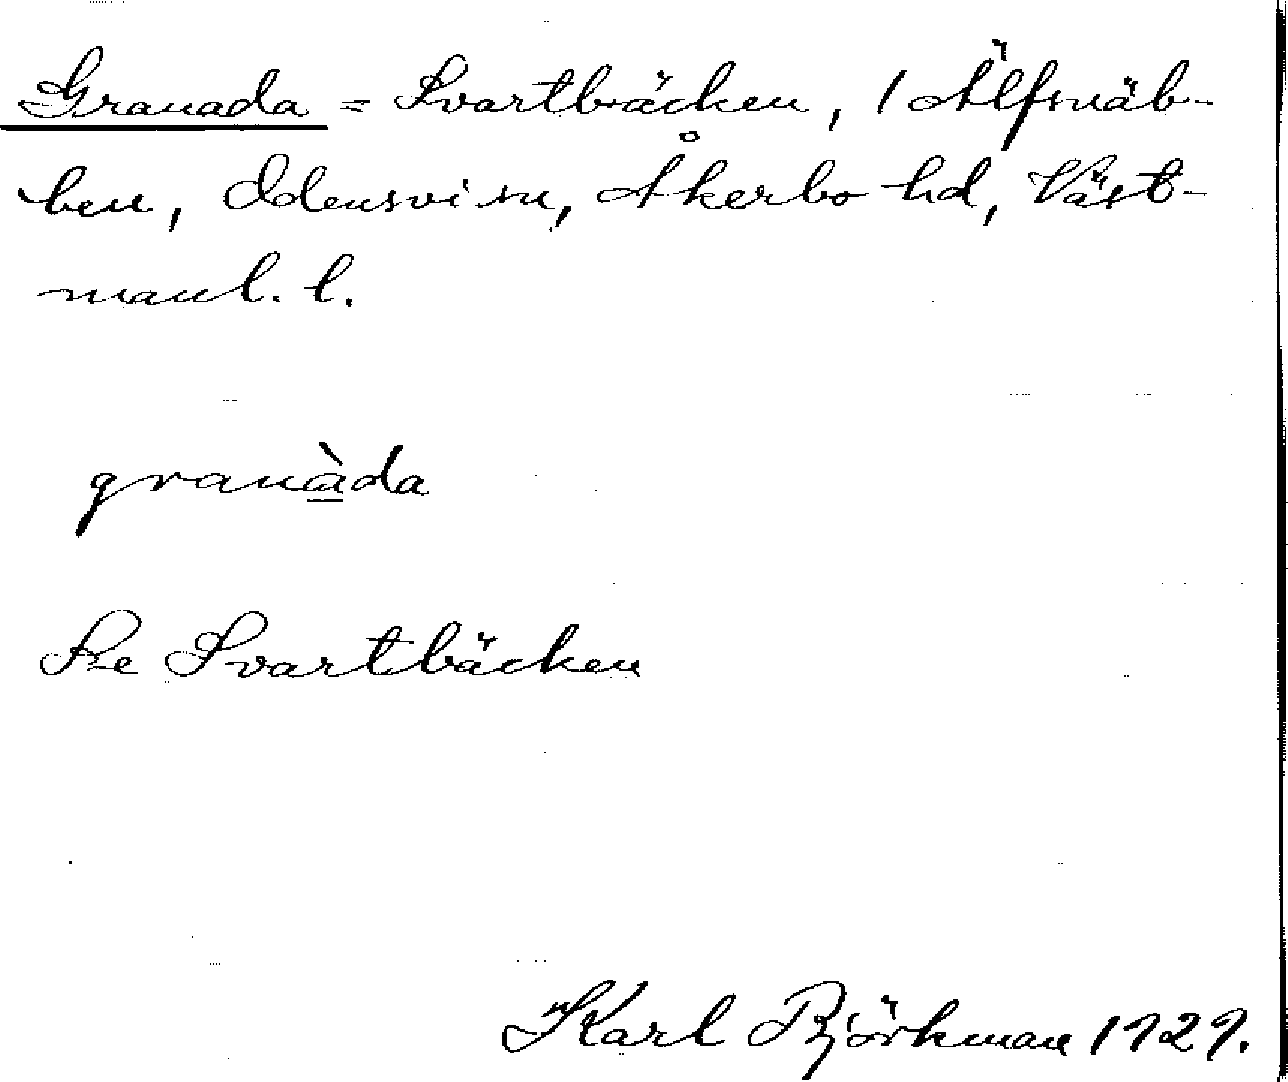 Granada = Svartbäcken, 1 Älfsnäb-
ben, Odensvi sn, Åkerbo hd, Väst-
manl. l.
granàda
Se Svartbäcken
Karl Björkman 1929.